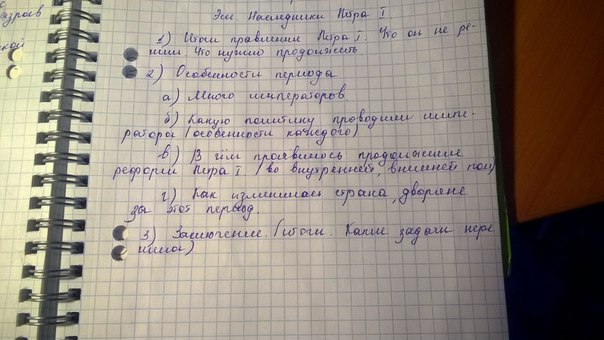 Эссе Наследники Петра I.
1) Итоги правления Петра I. Что он не ре-
шил. Что нужно продолжить
2) Особенности периода
а) Много императоров.
б) Какую политику проводили импе-
ратора (особенности каждого)
в) В чём проявилось продолжение
реформ Петра I (во внутренней, внешней пол
г) Как изменилась страна, дворяне
за этот период.
3) Заключение. (итоги. Какие задачи нере
шила)